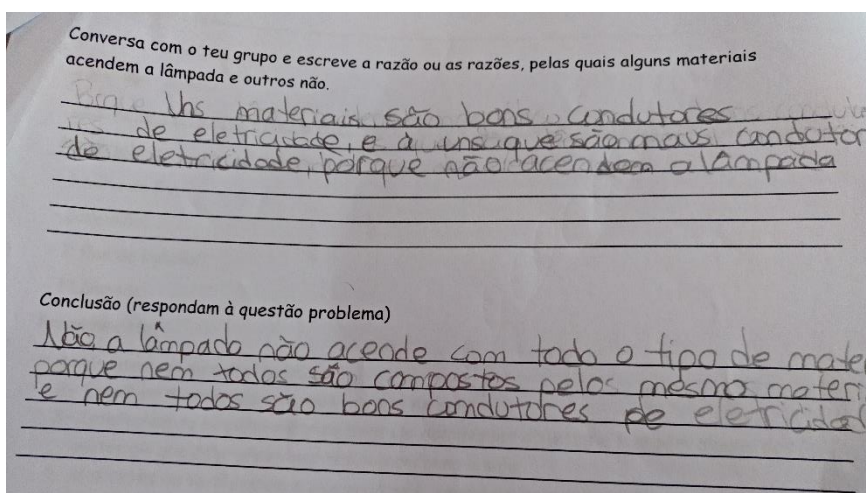 Conversa com o teu grupo e escreve a razão ou as razões, pelas quais alguns materiais
acendem a lâmpada e outros não.
Uns materiais são bons condutores
de eletricidade, e à uns que são maus condutor
de eletricidade, porque não acendem a lâmpada
Conclusão (respondam à questão problema)
Não a lâmpada não acende com todo o tipo de mate
porque nem todos são compostos pelos mesmo materi
e nem todos são bons condutores de eletricida